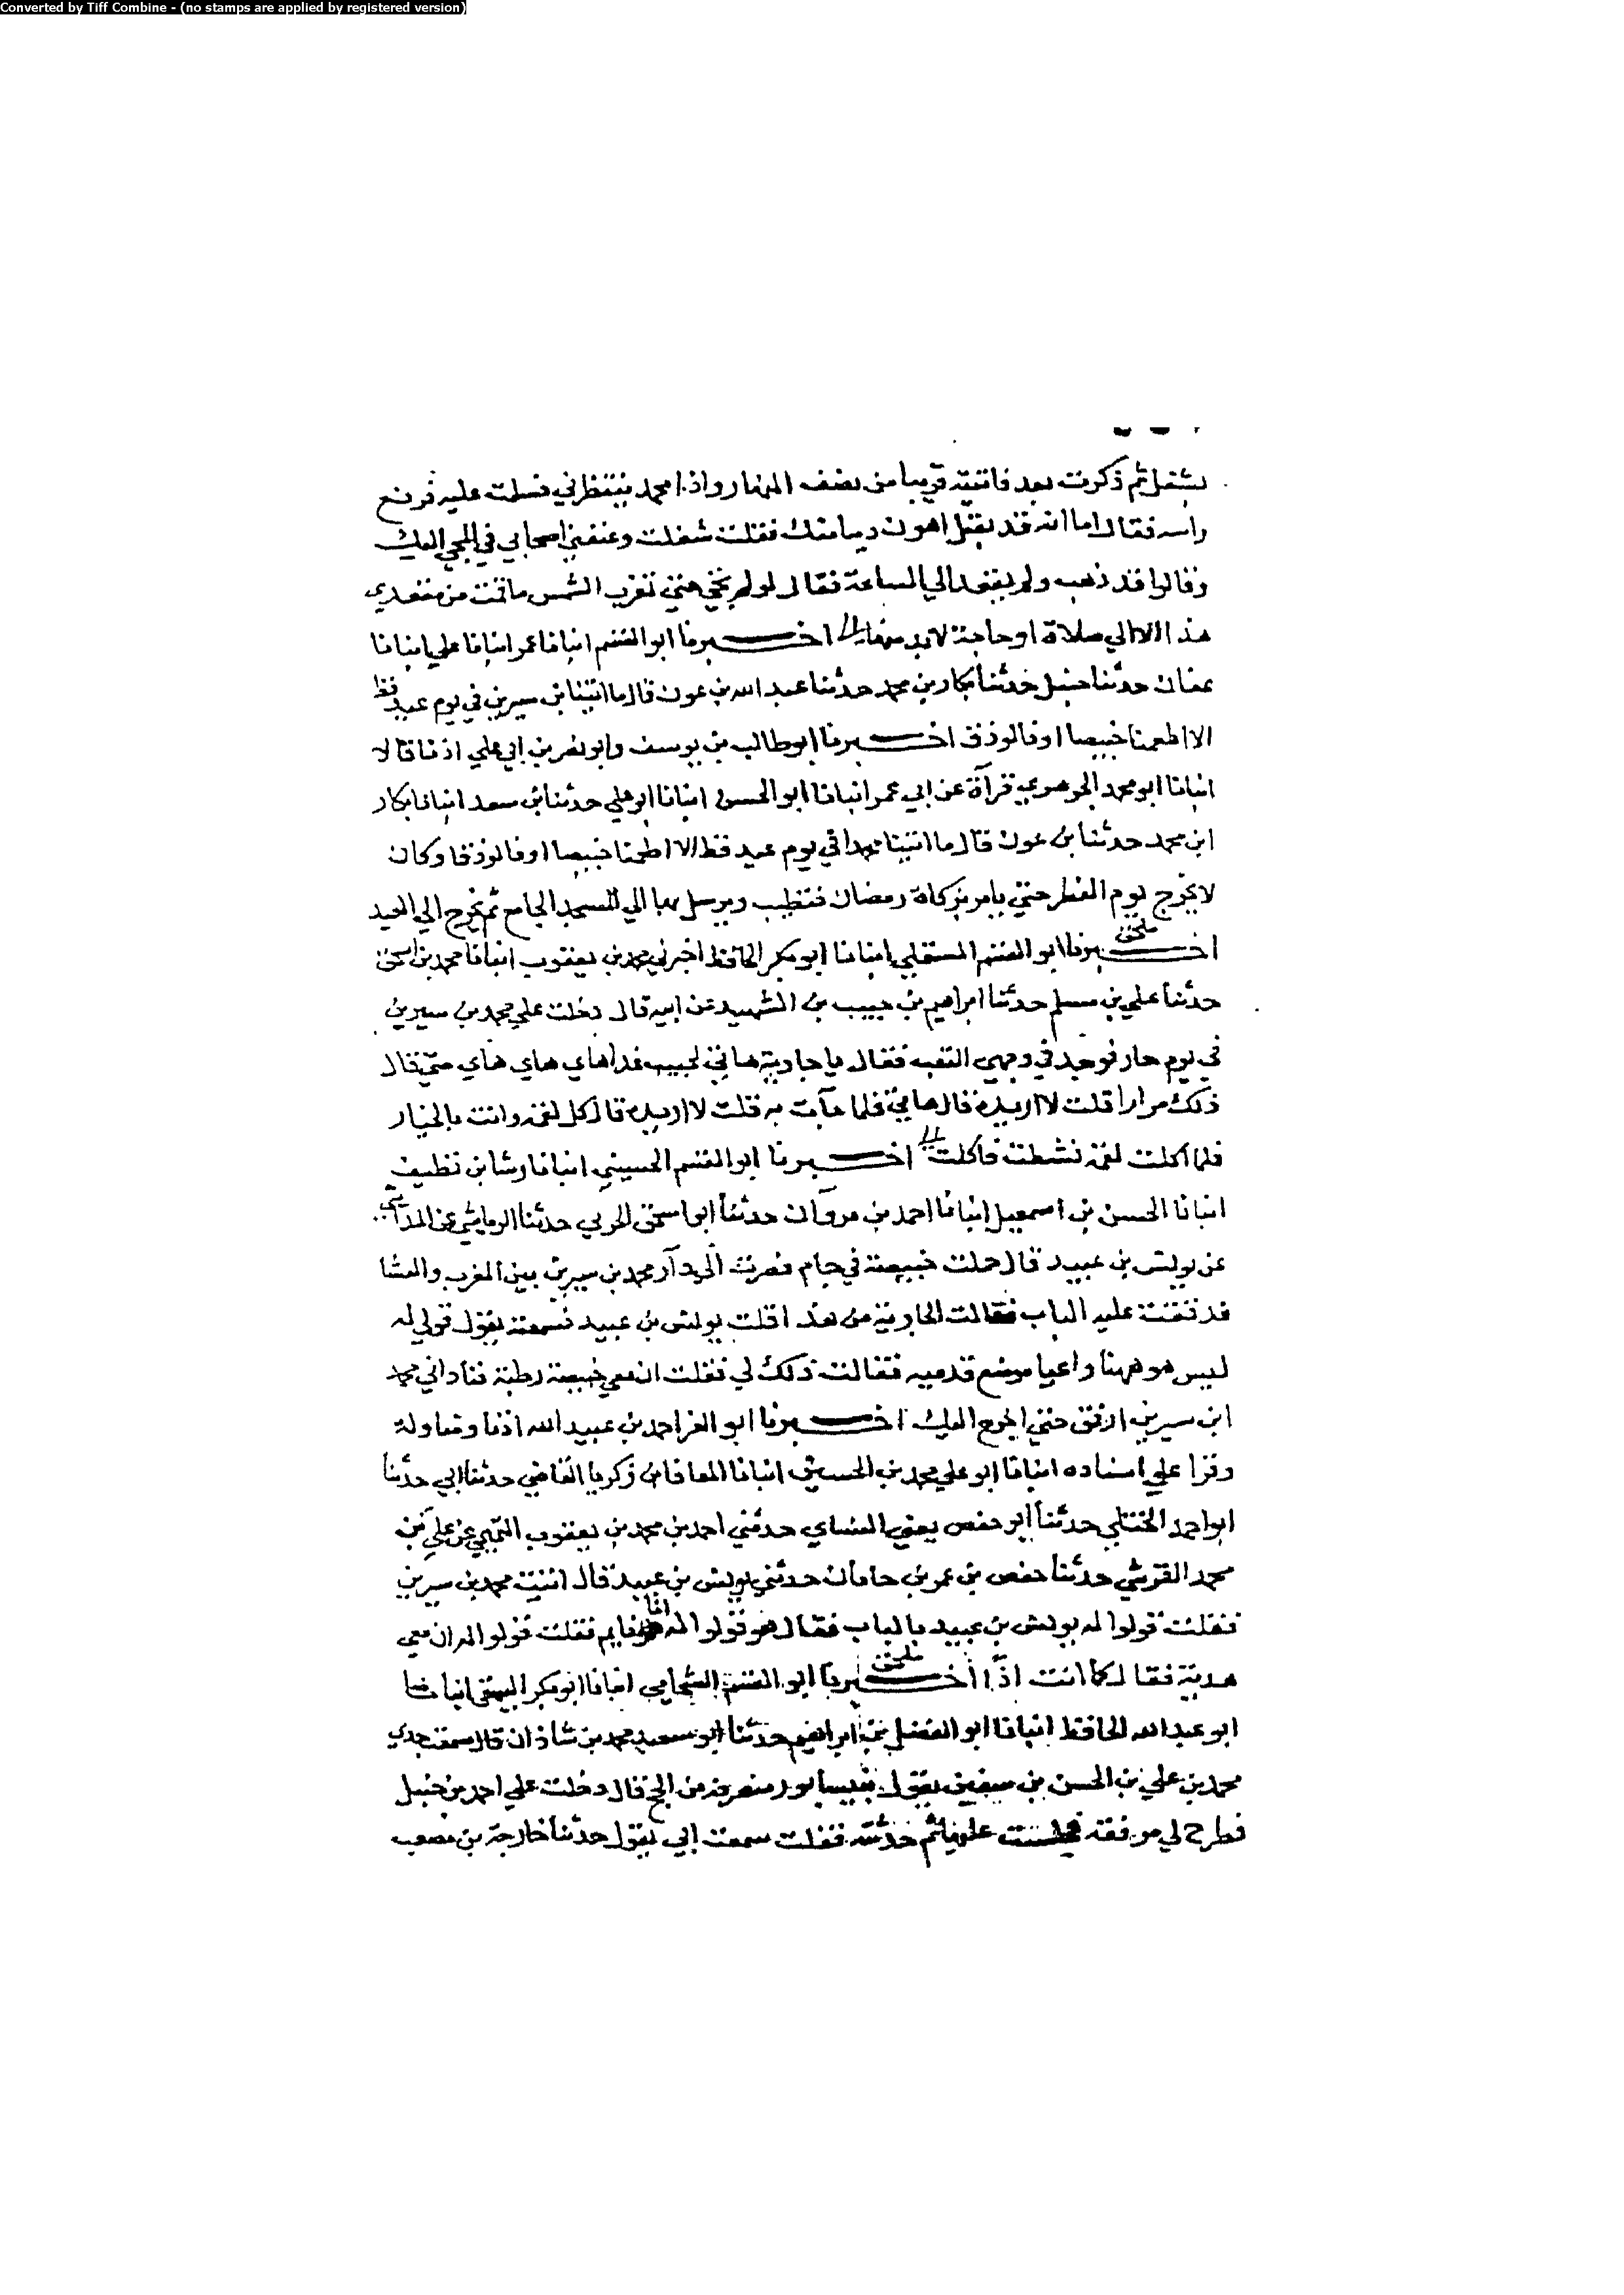 Converted by Tiff Combine - (no stamps are applied by registered version)
بشغل ثم ذكرت بعد فاتيته قريبا من نصف النهار واذا محمد ينتظرني فسلمت عليه فرفع
راسه فقال اما انه قد يقبل اهون دينا منك فقلت شغلت وعنفني اصحابي في المجي اليك
وقالوا قد ذهب ولم يقعد الي الساعة فقال لو لم تجي حتي تغرب الشمس ما قمت من مقعدي
هذا الا الي صلاة او حاجة لابد منها الي اخبرنا ابو القسم انبانا عمر انبانا علي انبانا
عثمان حدثنا حنبل حدثنا بكار بن محمد حدثنا عبد الله بن عون قال ما اتينا ابن سيرين في يوم عيد قط
الا اطعمنا خبيصا او فالوذق اخبرنا ابو طالب بن يوسف وابو نصر بن ابي علي اذنا قالا
انبانا ابو محمد الجوهري قرآة عن ابي عمر انبانا ابو الحسن انبانا ابو علي حدثنا ابن سعد انبانا بكار
ابن محمد حدثنا بن عون قال ما اتينا محمدا في يوم عيد قط الا اطعمنا خبيصا او فالوذقا وكان
لا يخرج يوم الفطر حتي يامر بزكاة رمضان فتطيب ويرسل بها الي المسجد الجامع ثم يخرج الي العيد
ملحق
اخبرنا ابو القسم المستملي انبانا ابو بكر الحافظ اخبرني محمد بن يعقوب انبانا محمد بن اسحق
حدثنا علي بن مسلم حدثنا ابراهيم بن حبيب بن الشهيد عن ابيه قال دخلت علي محمد بن سيرين
في يوم حار فوجد في وجهي التعب فقال يا جارية هاتي لحبيب غدا هاي هاي هاي حتي قال
ذلك مرارا قلت لا اريده قال هاتي فلما جآت به قلت لا اريده قال كل لقمة وانت بالخيار
فلما اكلت لقمة نشطت فاكلت الي اخبرنا ابو القسم الحسيني انبانا رشا بن نظيف
انبانا الحسن بن اسمعيل انبانا احمد بن مروآن حدثنا ابو اسحق الحربي حدثنا الرياشي عن المدآيني
عن يونس بن عبيد قال حملت خبيصة في جام فصرت الي دار محمد بن سيرين بين المغرب والعشا
فدققت عليه الباب فقالت الجارية من هذا قلت يونس بن عبيد فسمعته يقول قولي له
ليس هو ههنا واعيا موضع قدميه فقالت ذلك لي فقلت ان معي خبيصة رطبة فناداني محمد
ابن سيرين ارفق حتي اخرج اليك اخبرنا ابو العز احمد بن عبيد الله اذنا ومناولة
وقرا علي اسناده انبانا ابو علي محمد بن الحسين انبانا المعافا بن زكريا القاضي حدثنا ابي حدثنا
ابو احمد الختلي حدثنا ابو حفص يعني النساي حدثني احمد بن محمد بن يعقوب التميمي عن علي بن
محمد القرشي حدثنا حفص بن عمر بن خاقان حدثني يونس بن عبيد قال اتيت محمد بن سيرين
فقلت قولوا له يونس بن عبيد بالباب فقال قولوا له انا نايم فقلت قولوا له ان معي
هدية فقال كما انت اذًا ملحق اخبرنا ابو القسم الشحامي انبانا ابو بكر البيهقي انبانا
ابو عبد الله الحافظ انبانا ابو الفضل بن ابراهيم حدثنا ابو سعيد محمد بن شاذان قال سمعت جدي
محمد بن علي بن الحسن بن سفين يقول بنيسابور منصرفه من الحج قال دخلت علي احمد بن حنبل
فطرح لي مرفقة فجلست عليها ثم حدثته فقلت سمعت ابي يقول حدثنا خارجة بن مصعب